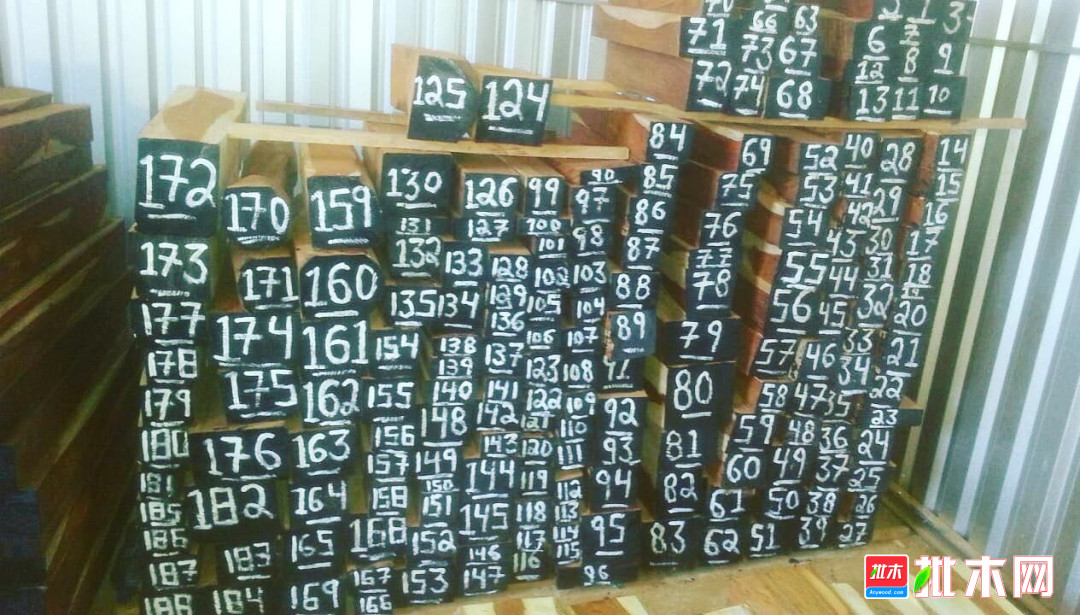 70
66
63
71
73
67
72
74
68
1
3
6
7
9
12
8
13
11
10
125
124
172
173
177
178
179
180
181
185
186
187
188
170
171
174
175
176
182
183
184
159
160
161
162
163
164
165
169
130
131
132
133
135
134
154
155
156
157
158
168
167
166
138
139
140
148
149
150
151
152
153
126
127
128
129
136
137
141
142
143
144
145
146
147
99
100
101
102
105
106
123
122
121
120
119
118
117
116
90
97
98
103
104
107
108
109
110
111
112
113
114
115
84
85
86
87
88
89
91
92
93
94
95
96
69
75
76
77
78
79
80
81
82
83
52
53
54
55
56
57
58
59
60
61
62
40
41
42
43
44
45
46
47
48
49
50
51
28
29
30
31
32
33
34
35
36
37
38
39
14
15
16
17
18
19
20
21
22
23
24
25
26
27
批木
Anywood.com
批木网